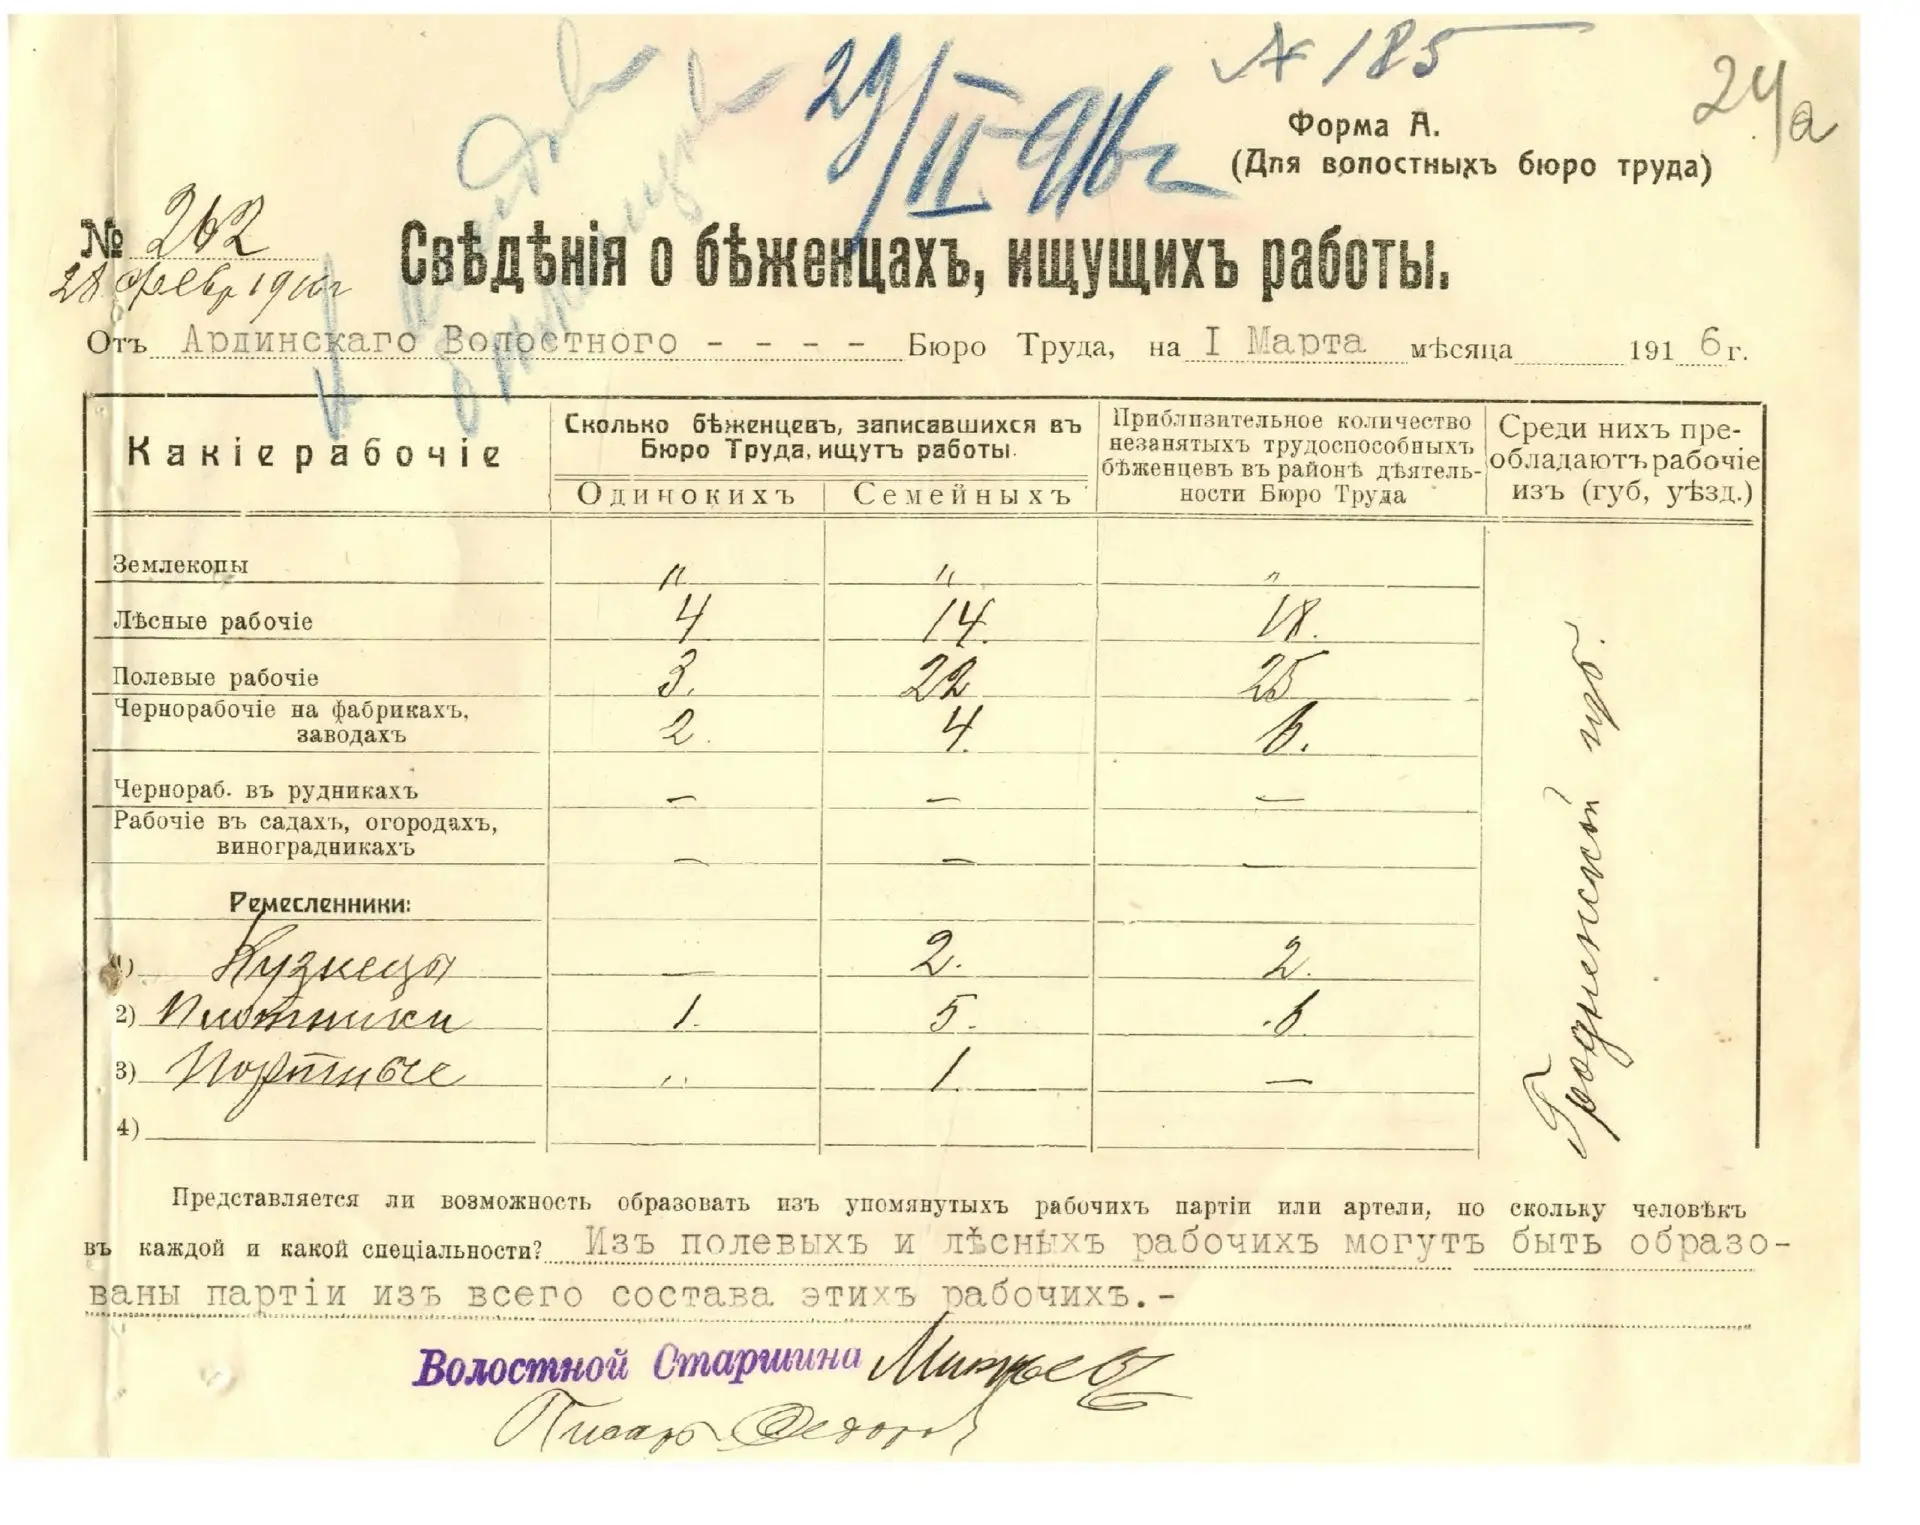 № 185
24/а
29/II-916 г
Форма А.
(Для волостныхъ бюро труда)
№ 262
28 Февр 1916 г
Свѣдѣнія о бѣженцахъ, ищущихъ работы.
Отъ Ардинскаго Волостного - - - - Бюро Труда, на I Марта мѣсяца 1916 г.
Какіе рабочіе
Сколько бѣженцевъ, записавшихся въ
Бюро Труда, ищутъ работы.
Одинокихъ Семейныхъ
Приблизительное количество
незанятыхъ трудоспособныхъ
бѣженцевъ въ районѣ дѣятель-
ности Бюро Труда
Среди нихъ пре-
обладаютъ рабочіе
изъ (губ, уѣзд.)
Землекопы " " "
Лѣсные рабочіе 4 14. 18.
Полевые рабочіе 3. 22 25
Чернорабочіе на фабрикахъ,
заводахъ 2. 4. 6.
Чернораб. въ рудникахъ — — —
Рабочіе въ садахъ, огородахъ,
виноградникахъ — — —
Ремесленники:
1) Кузнецы — 2. 2.
2) Плотники 1. 5. 6
3) Портные " 1. —
4)
Гродненской губ.
Представляется ли возможность образовать изъ упомянутыхъ рабочихъ партіи или артели, по скольку человѣкъ
въ каждой и какой спеціальности? Изъ полевыхъ и лѣсныхъ рабочихъ могутъ быть образо-
ваны партіи изъ всего состава этихъ рабочихъ.-
Волостной Старшина
Писарь Федоров